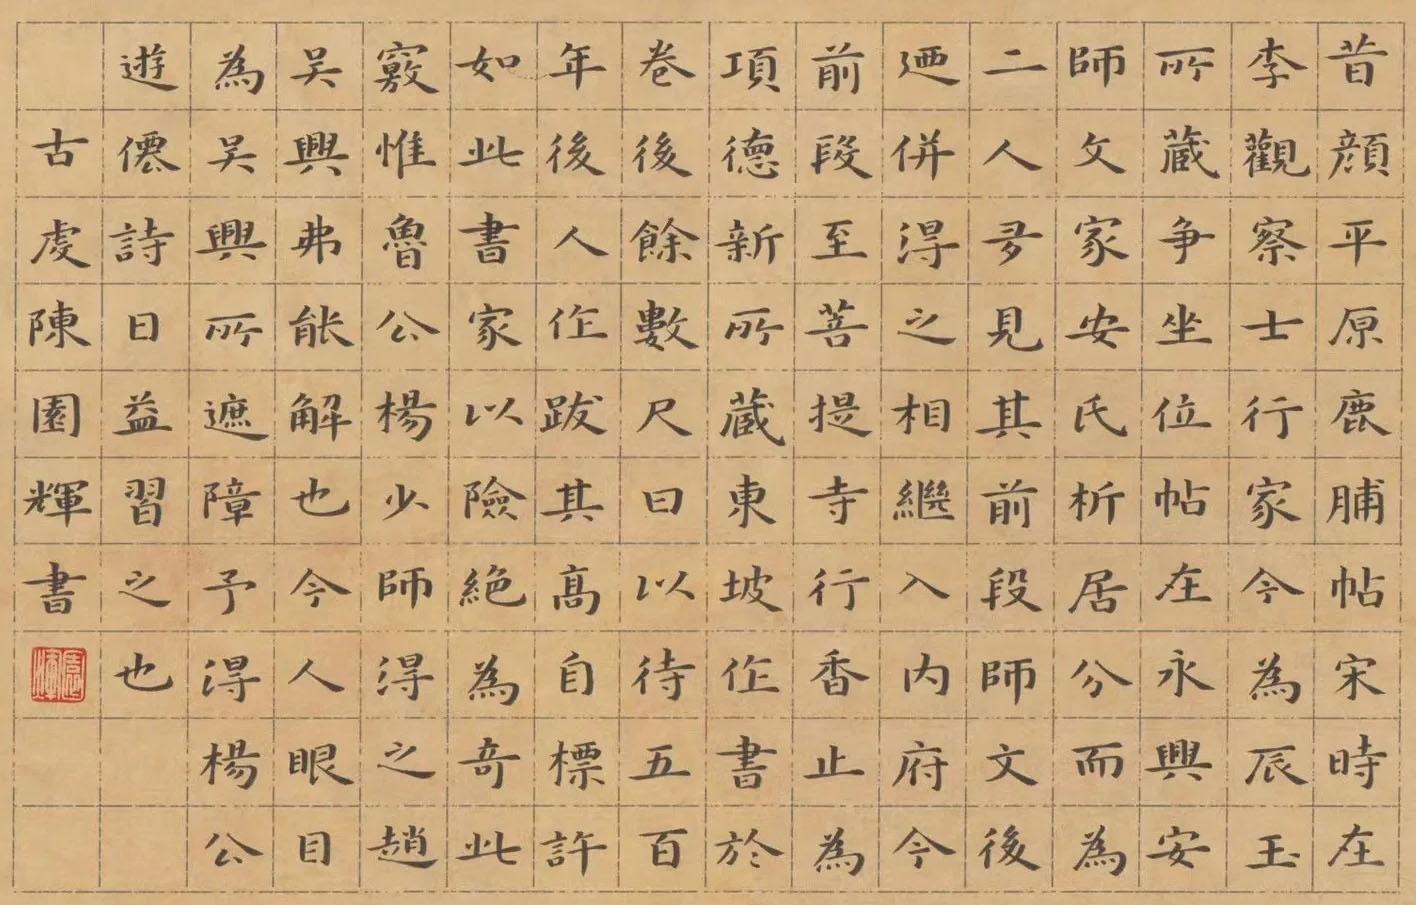 昔顔平原鹿脯帖宋時在
李觀察士行家今為辰玉
所蔵爭坐位帖在永興安
師文家安氏析居分而為
二人多見其前段師文後
迺併得之相繼入内府今
前段至菩提寺行香止為
項德新所蔵東坡作書於
卷後餘數尺曰以待五百
年後人作跋其髙自標許
如此書家以險絶為奇此
竅惟魯公楊少師得之趙
吴興弗能解也今人眼目
為吴興所遮障予得楊公
遊僊詩日益習之也
古虔陳園輝書